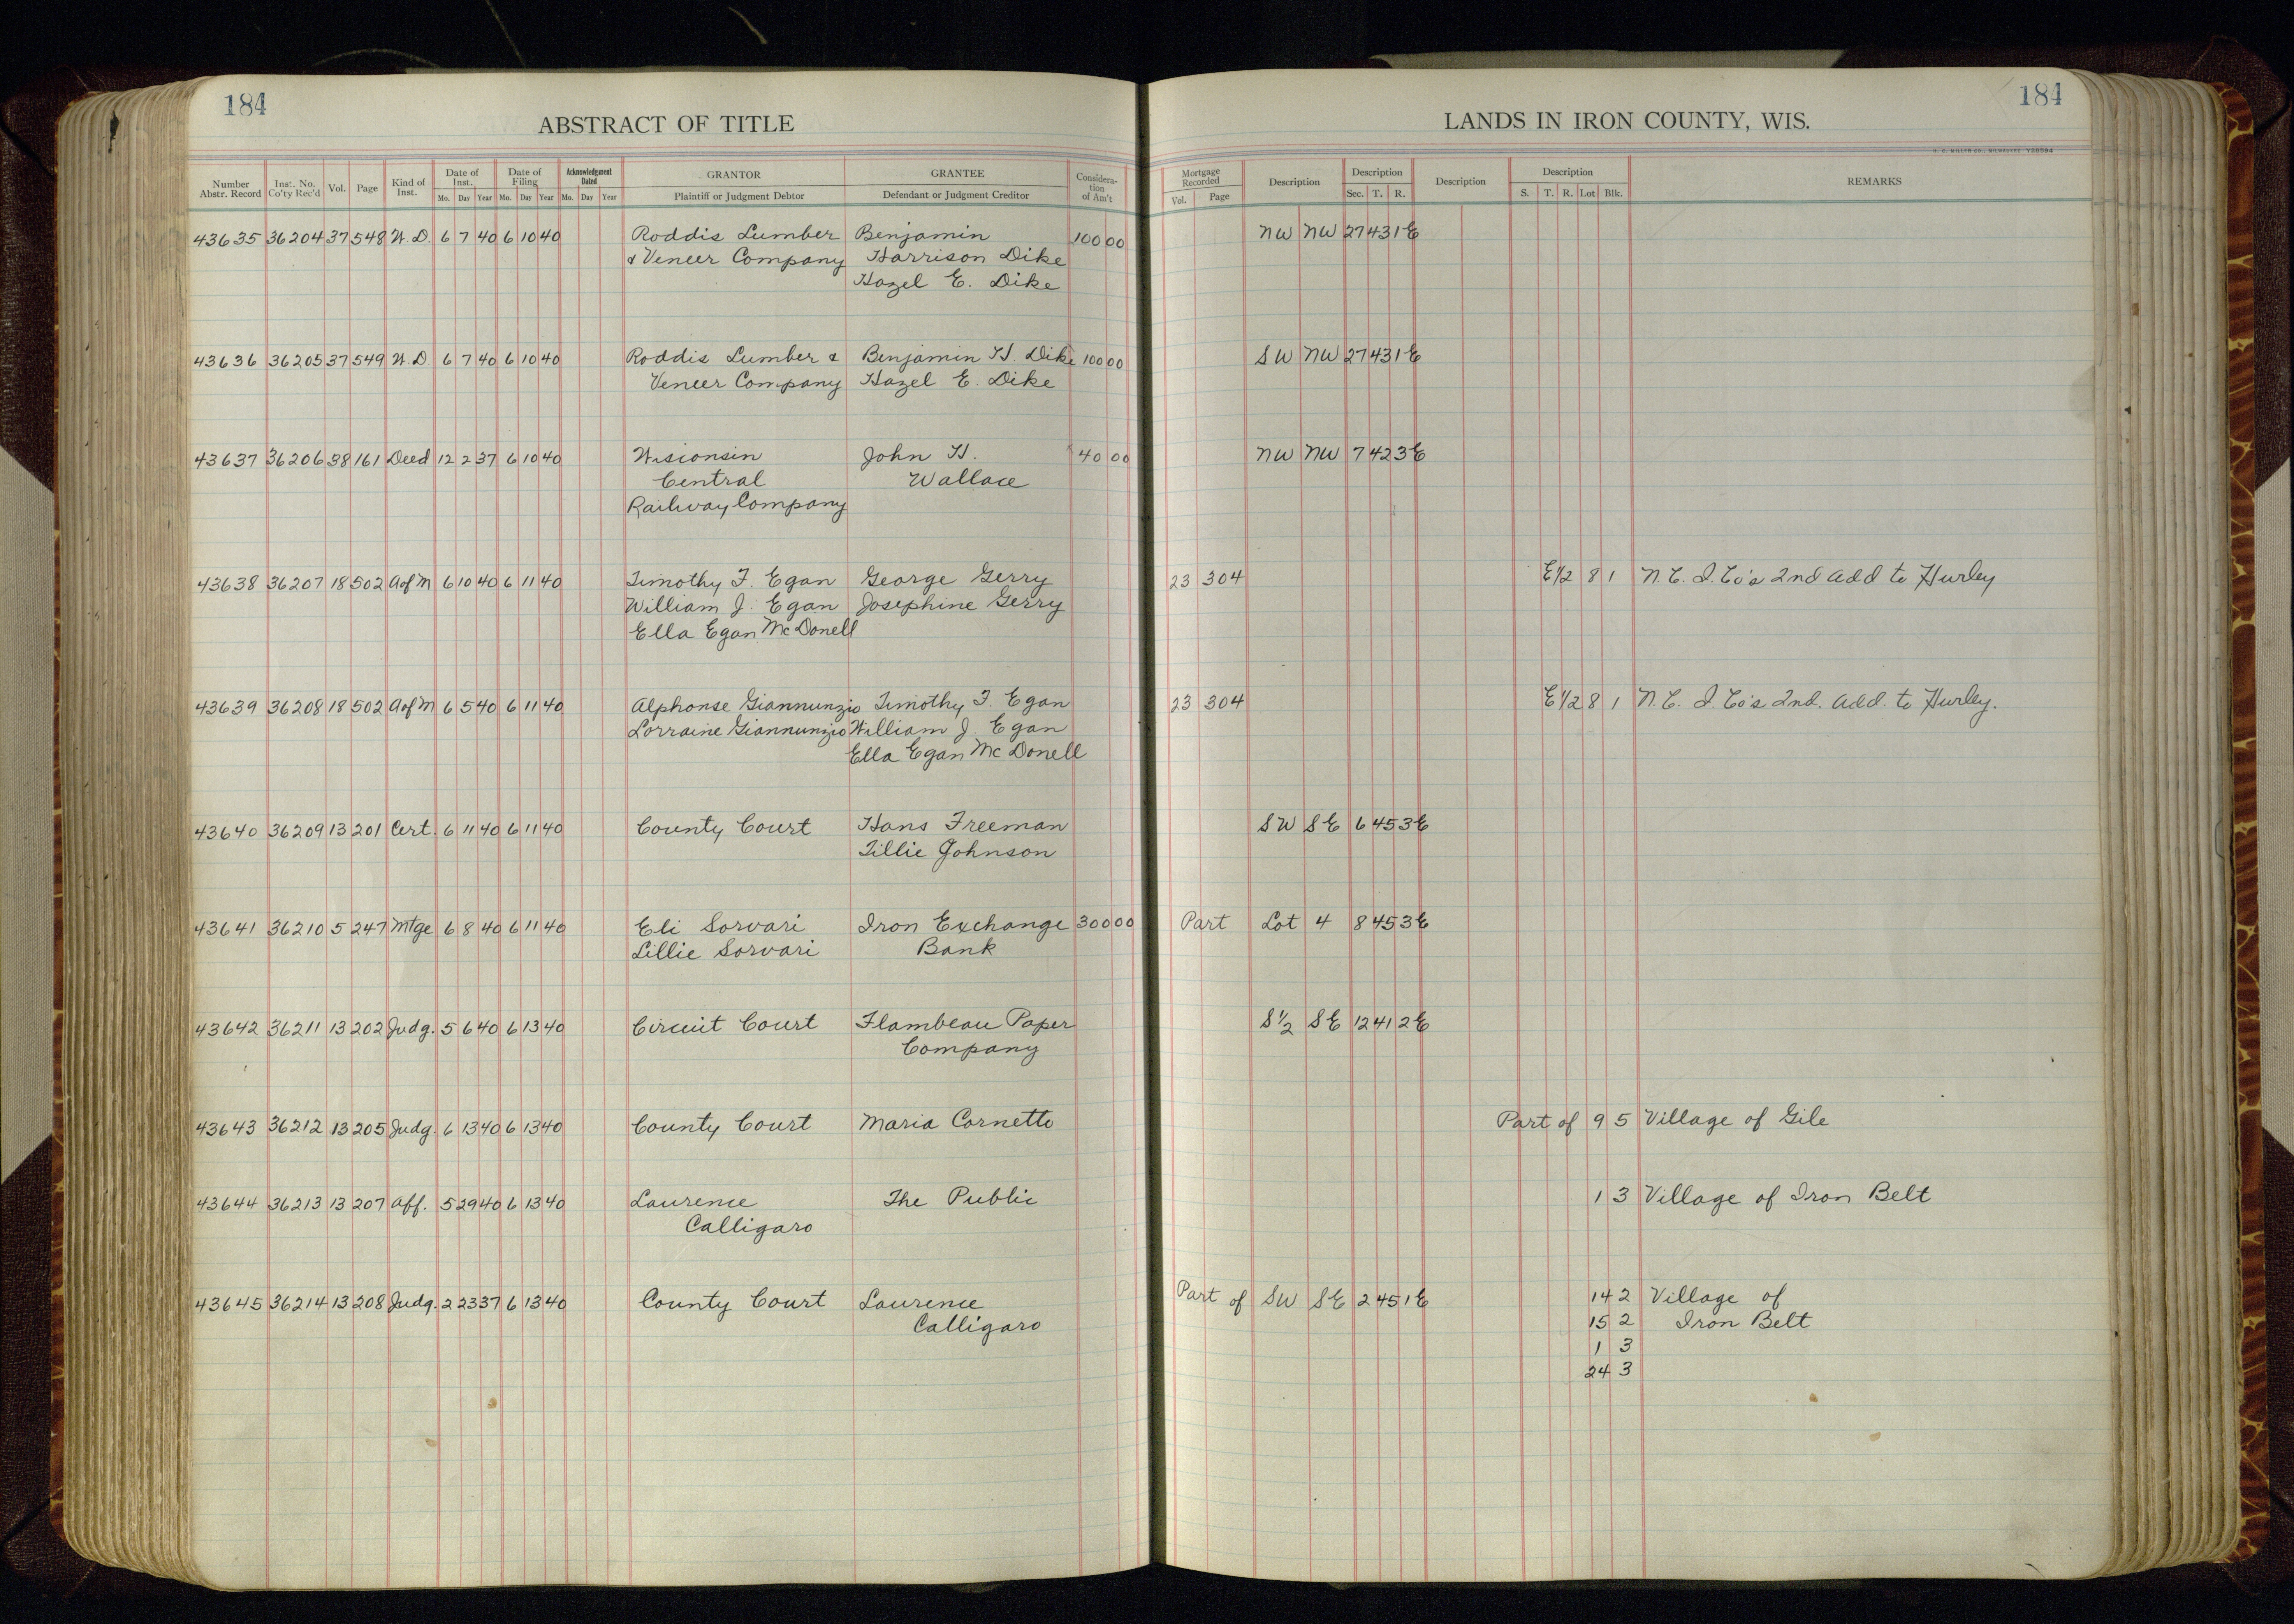 184
184
ABSTRACT OF TITLE
LANDS IN IRON COUNTY, WIS.
Number Abstr. Record | Inst. No. Co'ty Rec'd | Vol. | Page | Kind of Inst. | Date of Inst. Mo. Day Year | Date of Filing Mo. Day Year | Acknowledgment Dated Mo. Day Year | GRANTOR Plaintiff or Judgment Debtor | GRANTEE Defendant or Judgment Creditor | Consideration of Am't | Mortgage Recorded Vol. Page | Description | Description Sec. T. R. | Description | Description S. T. R. Lot Blk. | REMARKS
43635 36204 37 548 W.D. 6 7 40 6 10 40 Roddis Lumber Benjamin 100 00 NW NW 27 43 1E
& Veneer Company Harrison Dike
Hazel E. Dike
43636 36205 37 549 W.D 6 7 40 6 10 40 Roddis Lumber & Benjamin H. Dike 100 00 SW NW 27 43 1E
Veneer Company Hazel E. Dike
43637 36206 38 161 Deed 12 2 37 6 10 40 Wisconsin John H. 40 00 NW NW 7 42 3E
Central Wallace
Railway Company
43638 36207 18 502 A of M 6 10 40 6 11 40 Timothy F. Egan George Gerry 23 304 E 1/2 8 1 N. C. I. Co's 2nd Add to Hurley
William J. Egan Josephine Gerry
Ella Egan McDonell
43639 36208 18 502 A of M 6 5 40 6 11 40 Alphonse Giannunzio Timothy F. Egan 23 304 E 1/2 8 1 N. C. I. Co's 2nd. Add. to Hurley.
Lorraine Giannunzio William J Egan
Ella Egan McDonell
43640 36209 13 201 Cert. 6 11 40 6 11 40 County Court Hans Freeman SW SE 6 45 3E
Tillie Johnson
43641 36210 5 247 Mtge 6 8 40 6 11 40 Eli Sorvari Iron Exchange 300 00 Part Lot 4 8 45 3E
Lillie Sorvari Bank
43642 36211 13 202 Judg. 5 6 40 6 13 40 Circuit Court Flambeau Paper S 1/2 SE 12 41 2E
Company
43643 36212 13 205 Judg. 6 13 40 6 13 40 County Court Maria Cornetto Part of 9 5 Village of Gile
43644 36213 13 207 Aff. 5 29 40 6 13 40 Laurence The Public 1 3 Village of Iron Belt
Calligaro
43645 36214 13 208 Judg. 2 23 37 6 13 40 County Court Laurence Part of SW SE 2 45 1E 14 2 Village of
Calligaro 15 2 Iron Belt
1 3
24 3